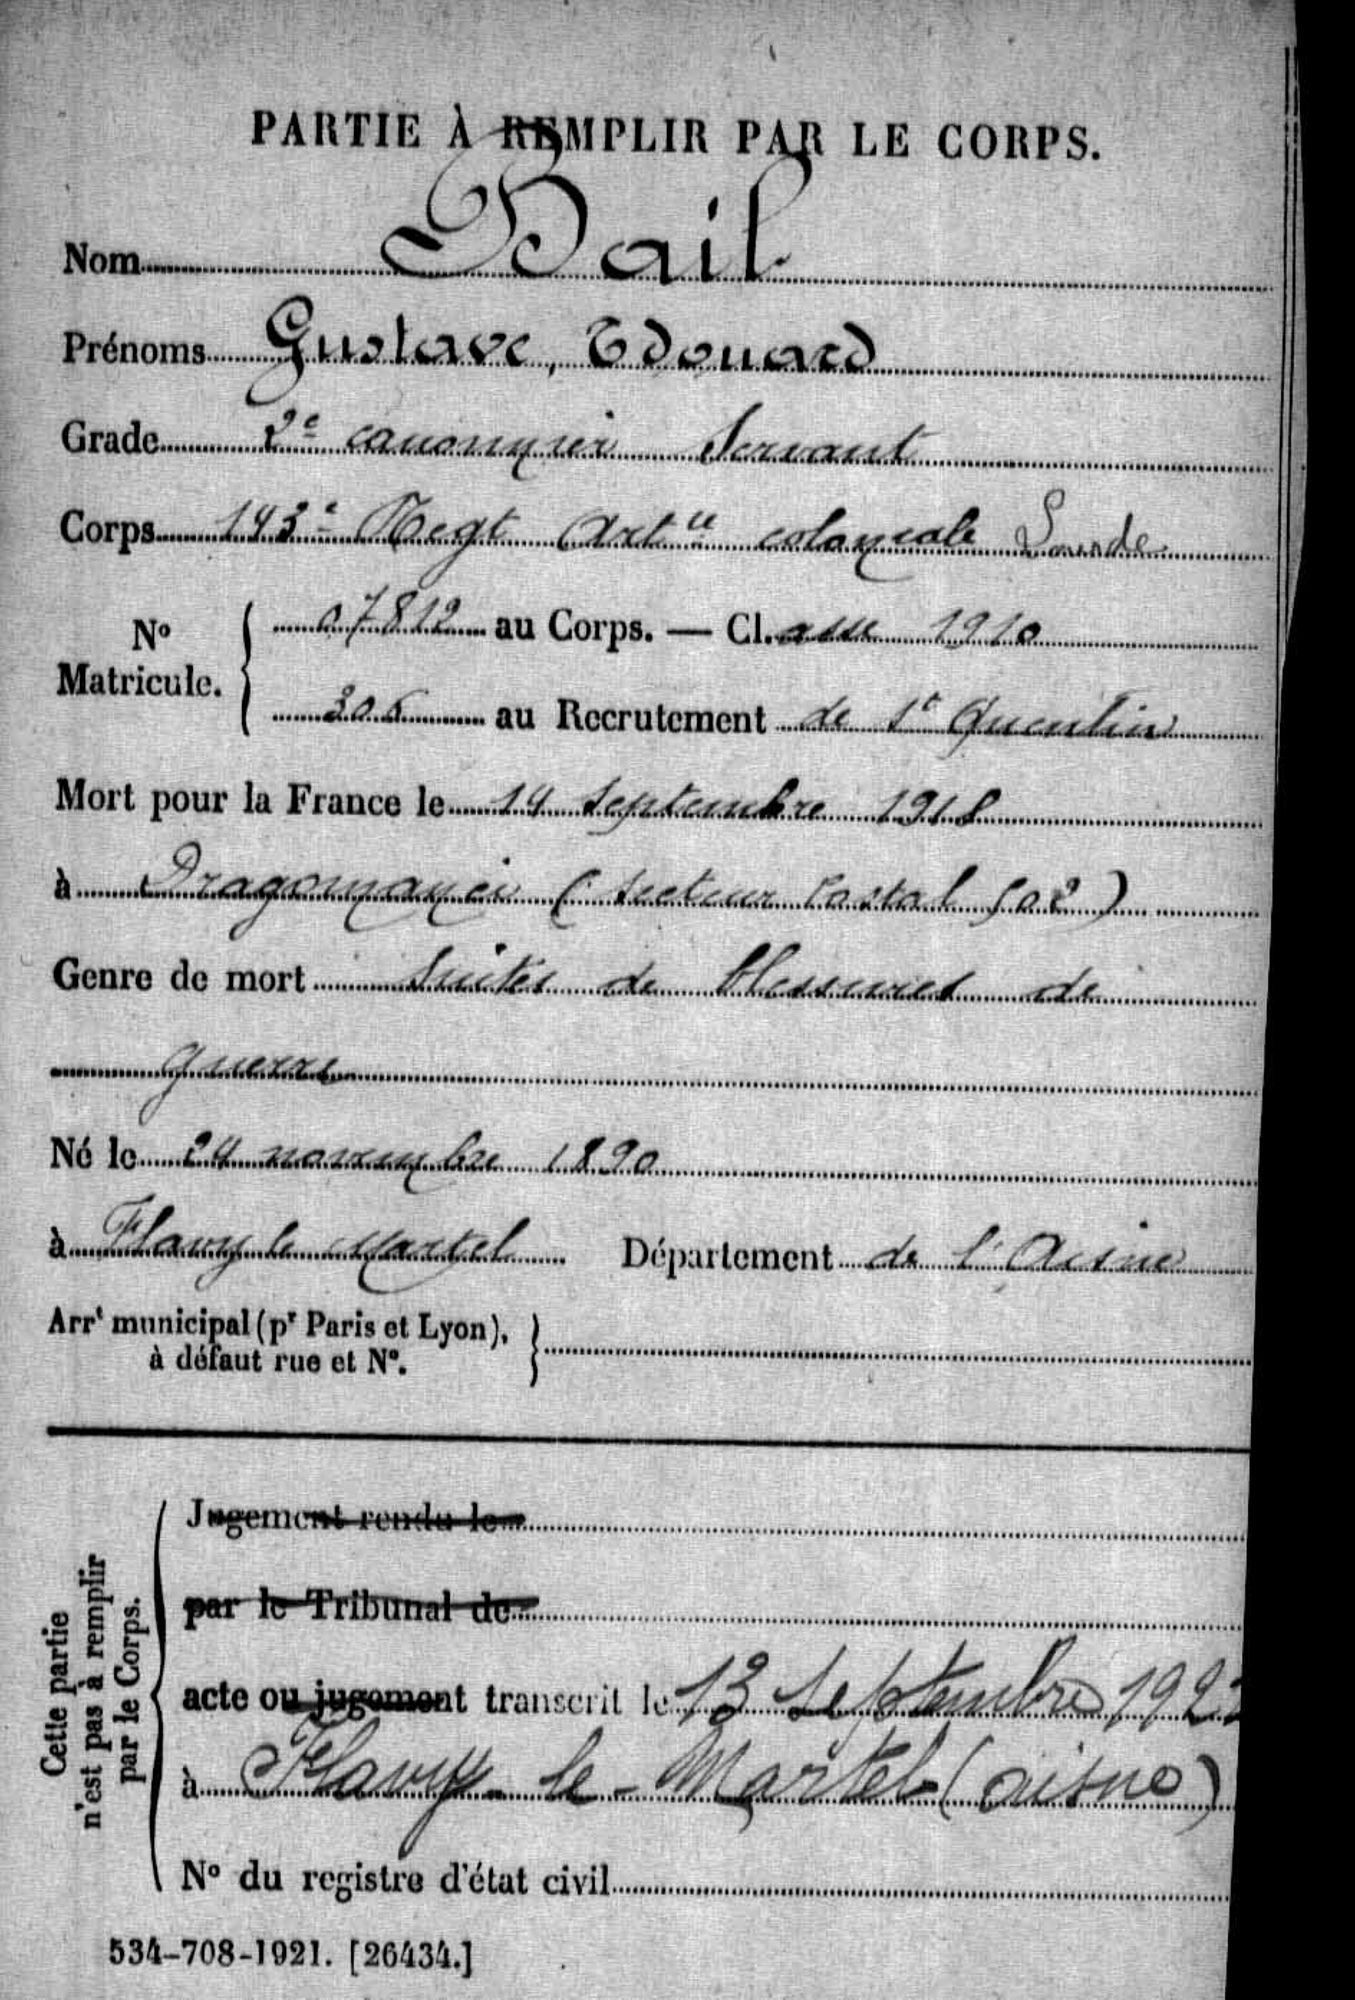 PARTIE À REMPLIR PAR LE CORPS.
Nom Bail
Prénoms Gustave, Edouard
Grade 2e canonnier Servant
Corps 143e Regt Artie coloniale Lourde
No Matricule. 07812 au Corps. — Cl.asse 1910
306 au Recrutement de St Quentin
Mort pour la France le 14 Septembre 1918
à Dragomanci (Secteur Postal 502)
Genre de mort Suites de blessures de
guerre
Né le 24 novembre 1890
à Flavy le Martel Département de l'Aisne
Arrt municipal (pr Paris et Lyon),
à défaut rue et No.
Cette partie
n'est pas à remplir
par le Corps.
Jugement rendu le
par le Tribunal de
acte ou jugement transcrit le 13 Septembre
à Flavy-le-Martel (aisne)
No du registre d'état civil
534-708-1921. [26434.]